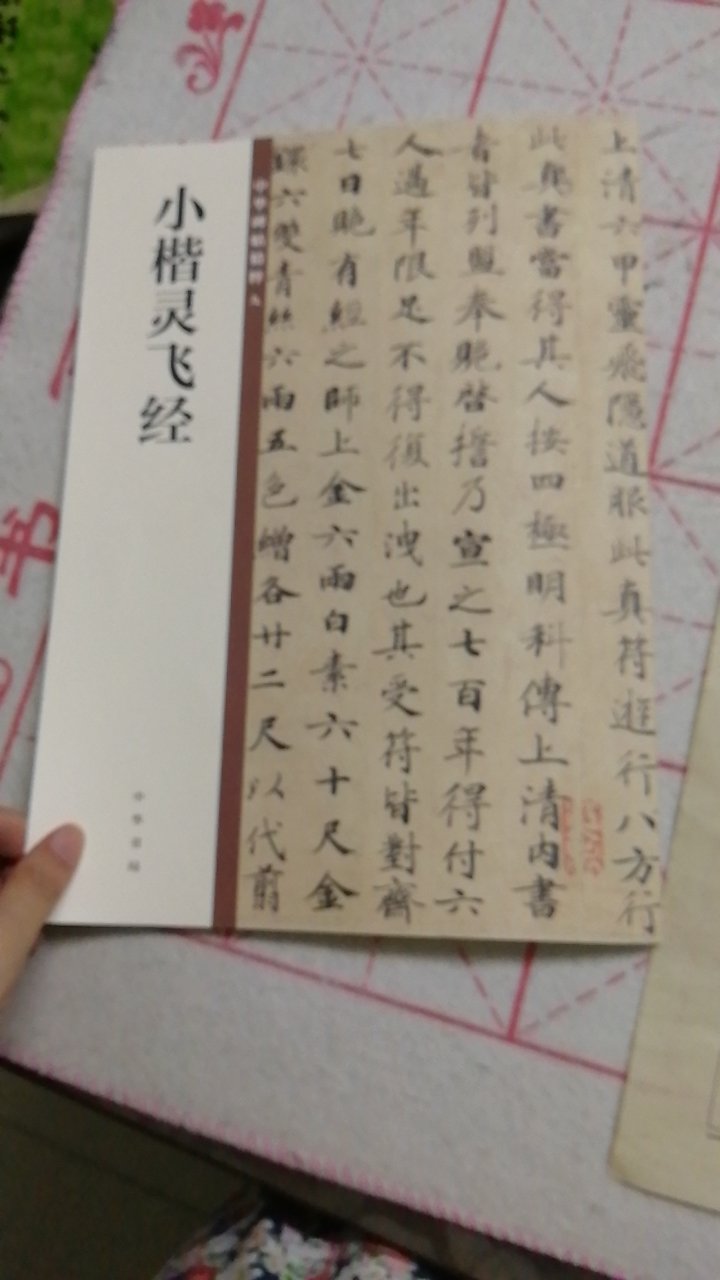 小楷灵飞经
中华碑帖精粹
中华书局
上清六甲靈飛隱道服此真符遊行八方行
此真書當得其人按四極明科傳上清内書
者皆列盟奉贶啓誓乃宣之七百年得付六
人過年限足不得復出洩也其受符皆對齋
七日贶有經之師上金六兩白素六十尺金
六雙青絲六兩五色繒各廿二尺以代翦
书